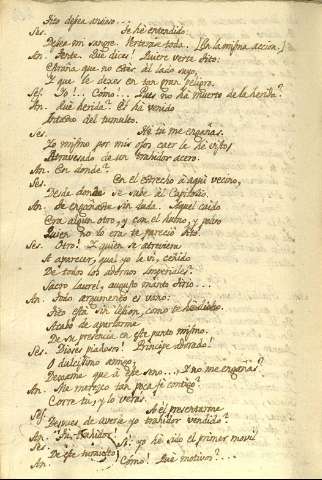 Tito desea ansioso...
Ses. Te hé entendido.
Desea mi sangre. Verterase toda. (En la misma accion.)
An. Tente. Que dices! Quiere verte Tito:
Extraña que no estés al lado suyo,
Y que le dexes en tan gran peligro.
Ses. Yo!... Cómo!... Pues no ha muerto de la herida?
An. Qué herida? El há venido
Ileso del tumulto.
Ses. Hé tu me engañas.
Yo mismo por mis ojos caer le hé visto
Atravesado de un trahidor acero.
An. En donde?
Ses. En el estrecho de aqui vecino,
Desde donde se sube al Capitolio.
An. Te engañaste sin duda. Aquel caido
Era algun otro, y con el humo, y polvo
Quien no lo era te pareció Tito.
Ses. Otro! Y quien se atreviera
A aparecer, que yo le vi, ceñido
De todos los adornos Imperiales:
Sacro laurel, augusto manto Tirio...
An. Todo argumento es vano:
Tito está sin lesion, como te hé dicho.
Acabo de apartarme
De su presencia en este punto mismo.
Ses. Dioses piadosos! Principe adorado!
O dulcisimo amigo,
Dexame que á este seno... Y no me engañas?
An. Me merezco tan poca fé contigo?
Corre tu, y lo verás.
Ses. Yo el presentarme
Despues de averle yo trahidor vendido?
An. Tu trahidor?
Ses. Sí: yo hé sido el primer movil
De este tumulto.
An. Cómo! Qué motivo?...